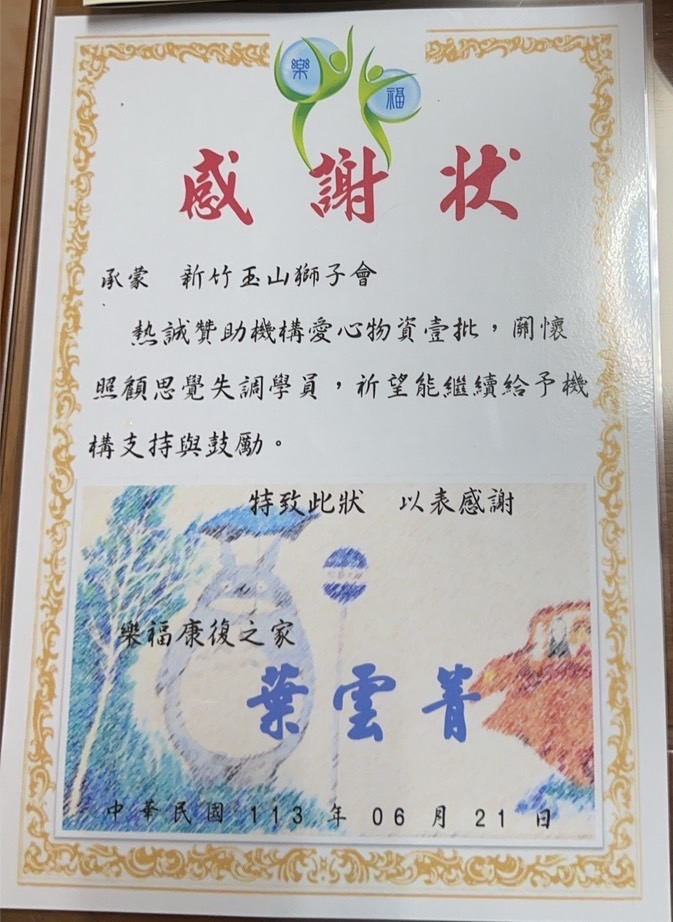 樂 福
感謝狀
承蒙　新竹玉山獅子會
熱誠贊助機構愛心物資壹批，關懷
照顧思覺失調學員，祈望能繼續給予機
構支持與鼓勵。
特致此狀　以表感謝
樂福康復之家
葉雲菁
中華民國 113 年 06 月 21 日